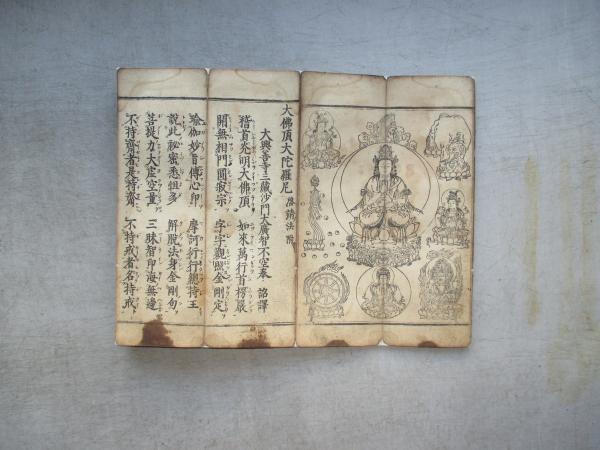 大佛頂大陀羅尼 啓請法附
大興善寺三藏沙門大廣智不空奉 詔譯
稽首光明大佛頂 如來萬行首楞嚴
開無相門圓寂宗 字字觀照金剛定
瑜伽妙旨傳心印 摩訶衍行總持王
說此秘密悉怛多 解脫法身金剛句
菩提力大虛空量 三昧智印海無邊
不持齋者是持齋 不持戒者名持戒